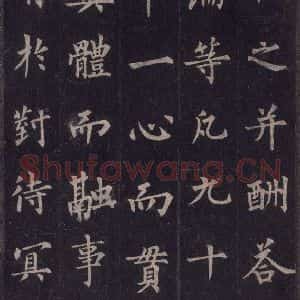 之并酬荅
論等凡九十
本一心而貫
真體而融事
有於對待冥
Shufawang.CN